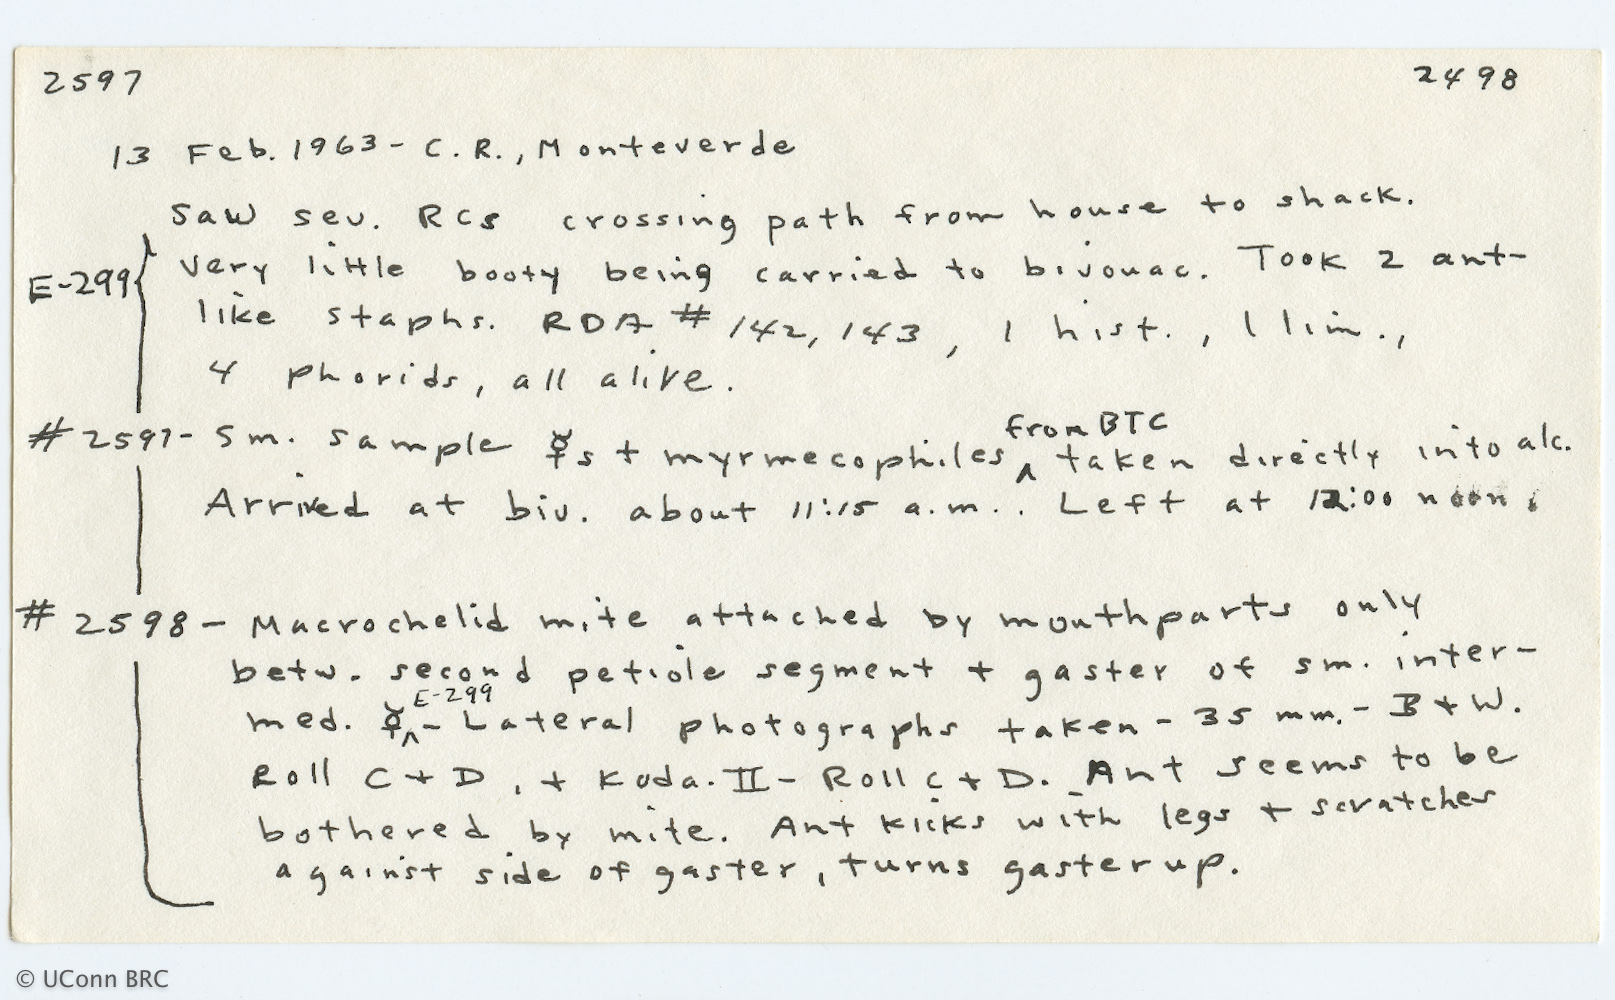 2597 2498
13 Feb. 1963 - C.R., Monteverde
Saw sev. RCs crossing path from house to shack.
E-299 very little booty being carried to bivouac. Took 2 ant-
like staphs. RDA # 142, 143, 1 hist., 1 lim.,
4 phorids, all alive.
from BTC
# 2597 - Sm. sample ☿s + myrmecophiles ^ taken directly into alc.
Arrived at biv. about 11:15 a.m.. Left at 12:00 noon.
# 2598 - Macrochelid mite attached by mouthparts only
betw. second petiole segment + gaster of sm. inter-
E-299
med. ☿^ - Lateral photographs taken - 35 mm. - B + W.
Roll C + D, + Koda. II - Roll C + D. Ant seems to be
bothered by mite. Ant kicks with legs + scratches
against side of gaster, turns gaster up.
© UConn BRC